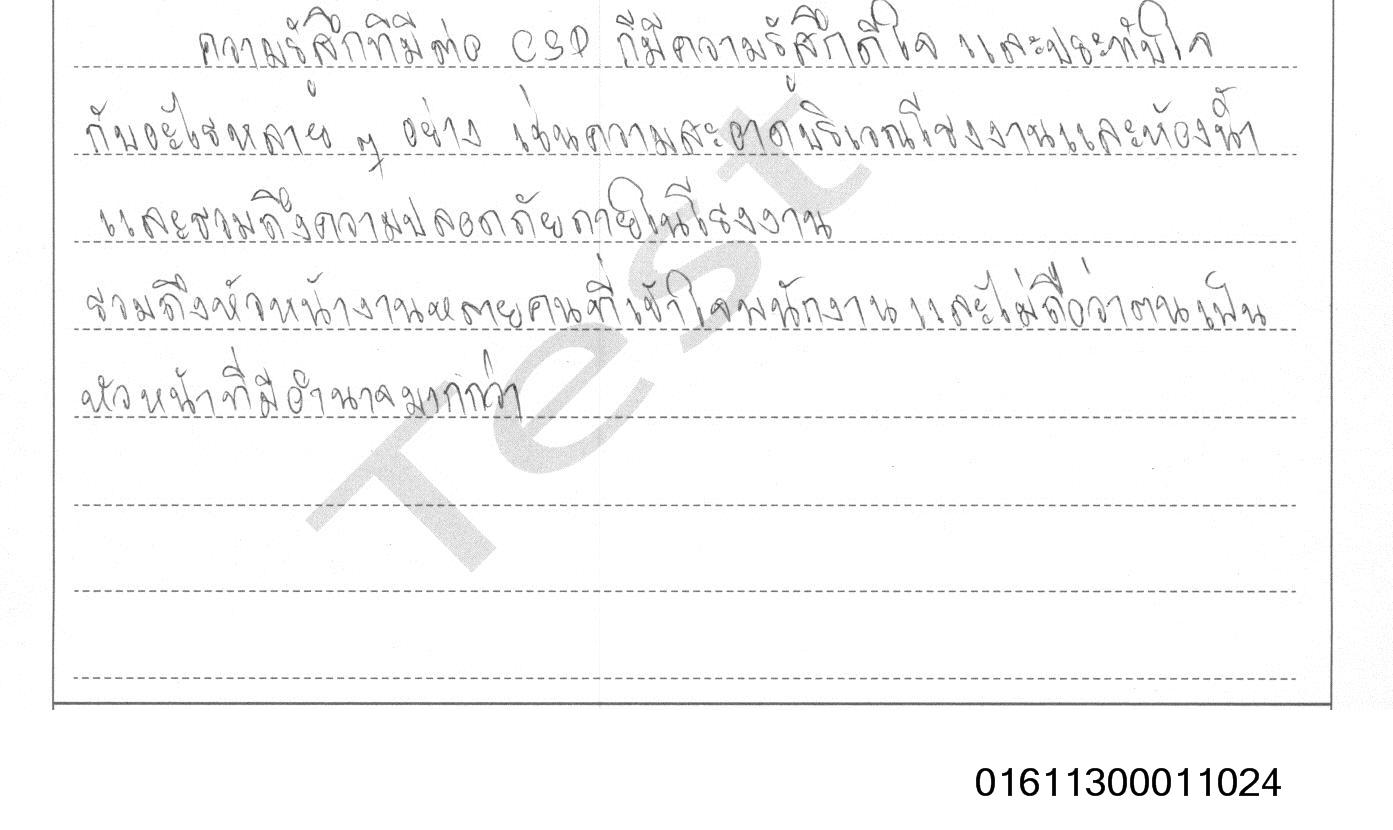 ความรู้สึกที่มีต่อ CSP ก็มีความรู้สึกดีใจ และประทับใจ
กับอะไรหลาย ๆ อย่าง เช่นความสะอาดบริเวณโรงงานและห้องน้ำ
และรวมถึงความปลอดภัยภายในโรงงาน
รวมถึงหัวหน้างานหลายคนที่เข้าใจพนักงาน และไม่ถือว่าตนเป็น
หัวหน้าที่มีอำนาจมากกว่า
Test
01611300011024